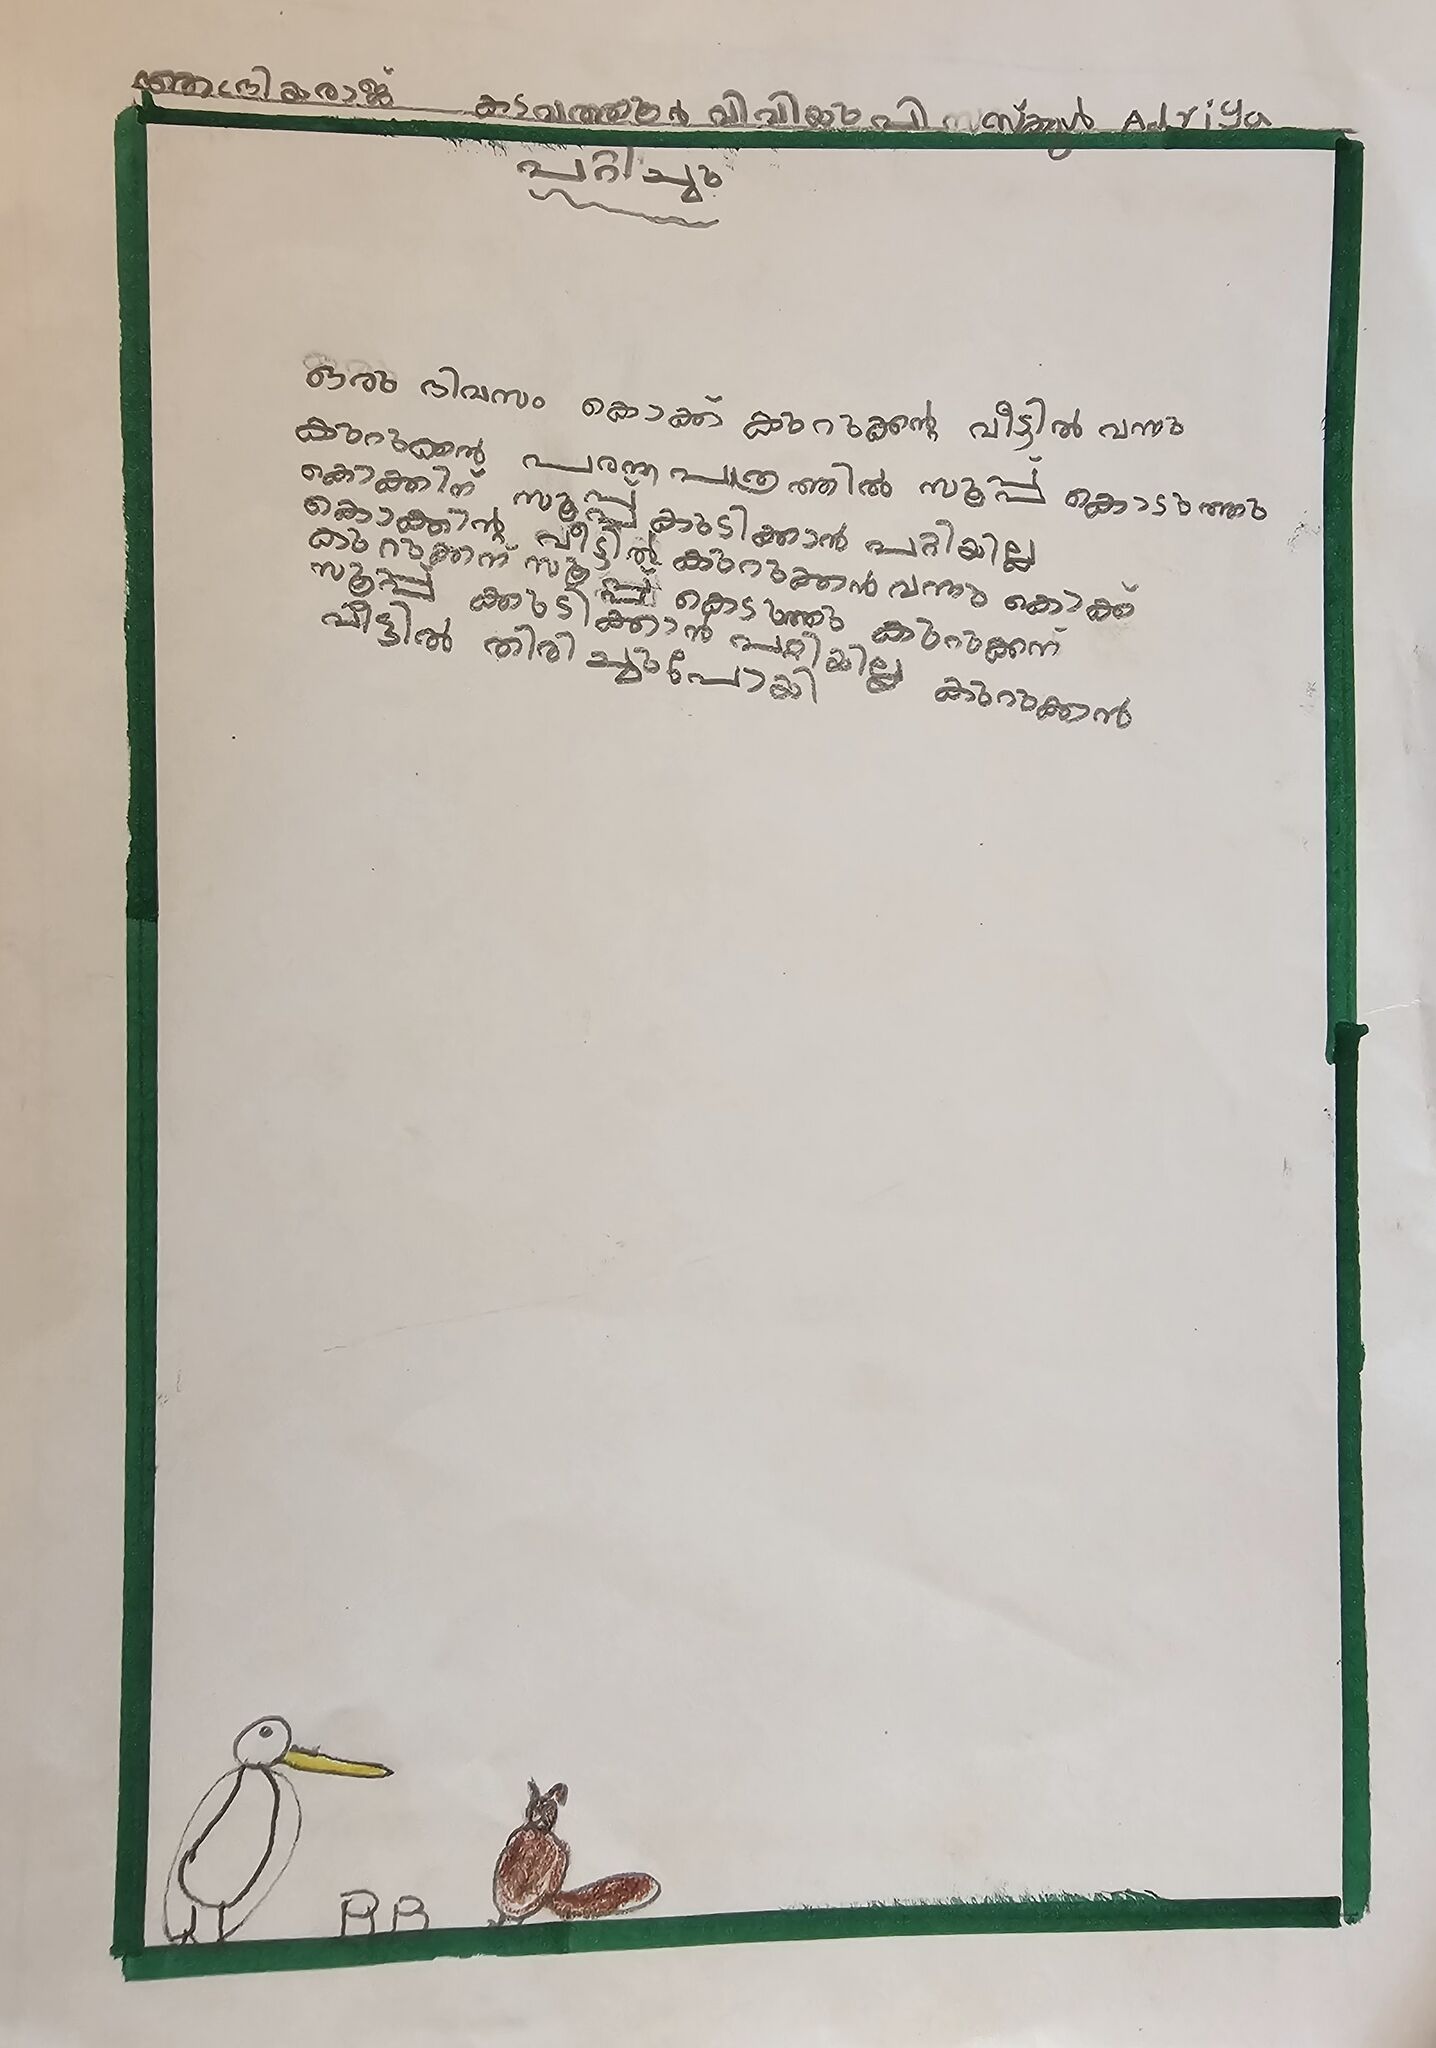 കടവത്തൂർ വിവിയു പി സ്കൂൾ Adriya
പറ്റിച്ചും
ഒരു ദിവസം കൊക്ക് കുറുക്കന്റെ വീട്ടിൽ വന്നു
കുറുക്കൻ പരന്ന പാത്രത്തിൽ സൂപ്പ് കൊടുത്തു
കൊക്കിന് സൂപ്പ് കുടിക്കാൻ പറ്റിയില്ല
കൊക്കിന്റ വീട്ടിൽ കുറുക്കൻ വന്നു കൊക്ക്
കുറുക്കന് സൂപ്പ് കെടുത്തു കുറുക്കന്
സൂപ്പ് ക്കുടിക്കാൻ പറ്റിയില്ല കുറുക്കാൻ
വീട്ടിൽ തിരിച്ചുപോയി